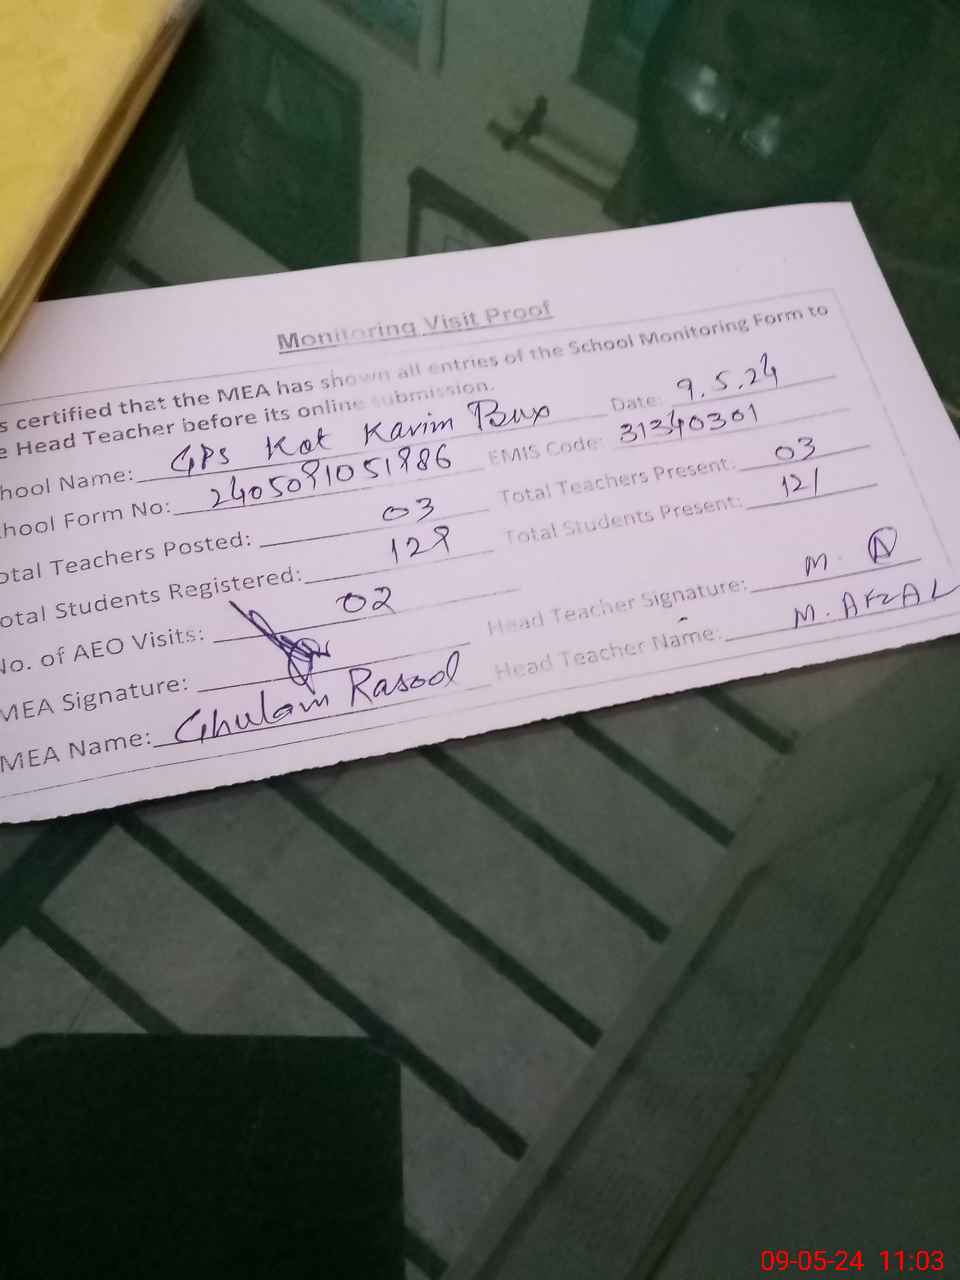 Monitoring Visit Proof
s certified that the MEA has shown all entries of the School Monitoring Form to
e Head Teacher before its online submission.
hool Name: GPS Kot Karim Bux Date: 9.5.24
hool Form No: EMIS Code: 31340301
otal Teachers Posted: 03 Total Teachers Present: 03
otal Students Registered: 129 Total Students Present: 121
No. of AEO Visits: 02
MEA Signature: Head Teacher Signature: M. A
MEA Name: Ghulam Rasool Head Teacher Name: M. AFZAL
09-05-24 11:03